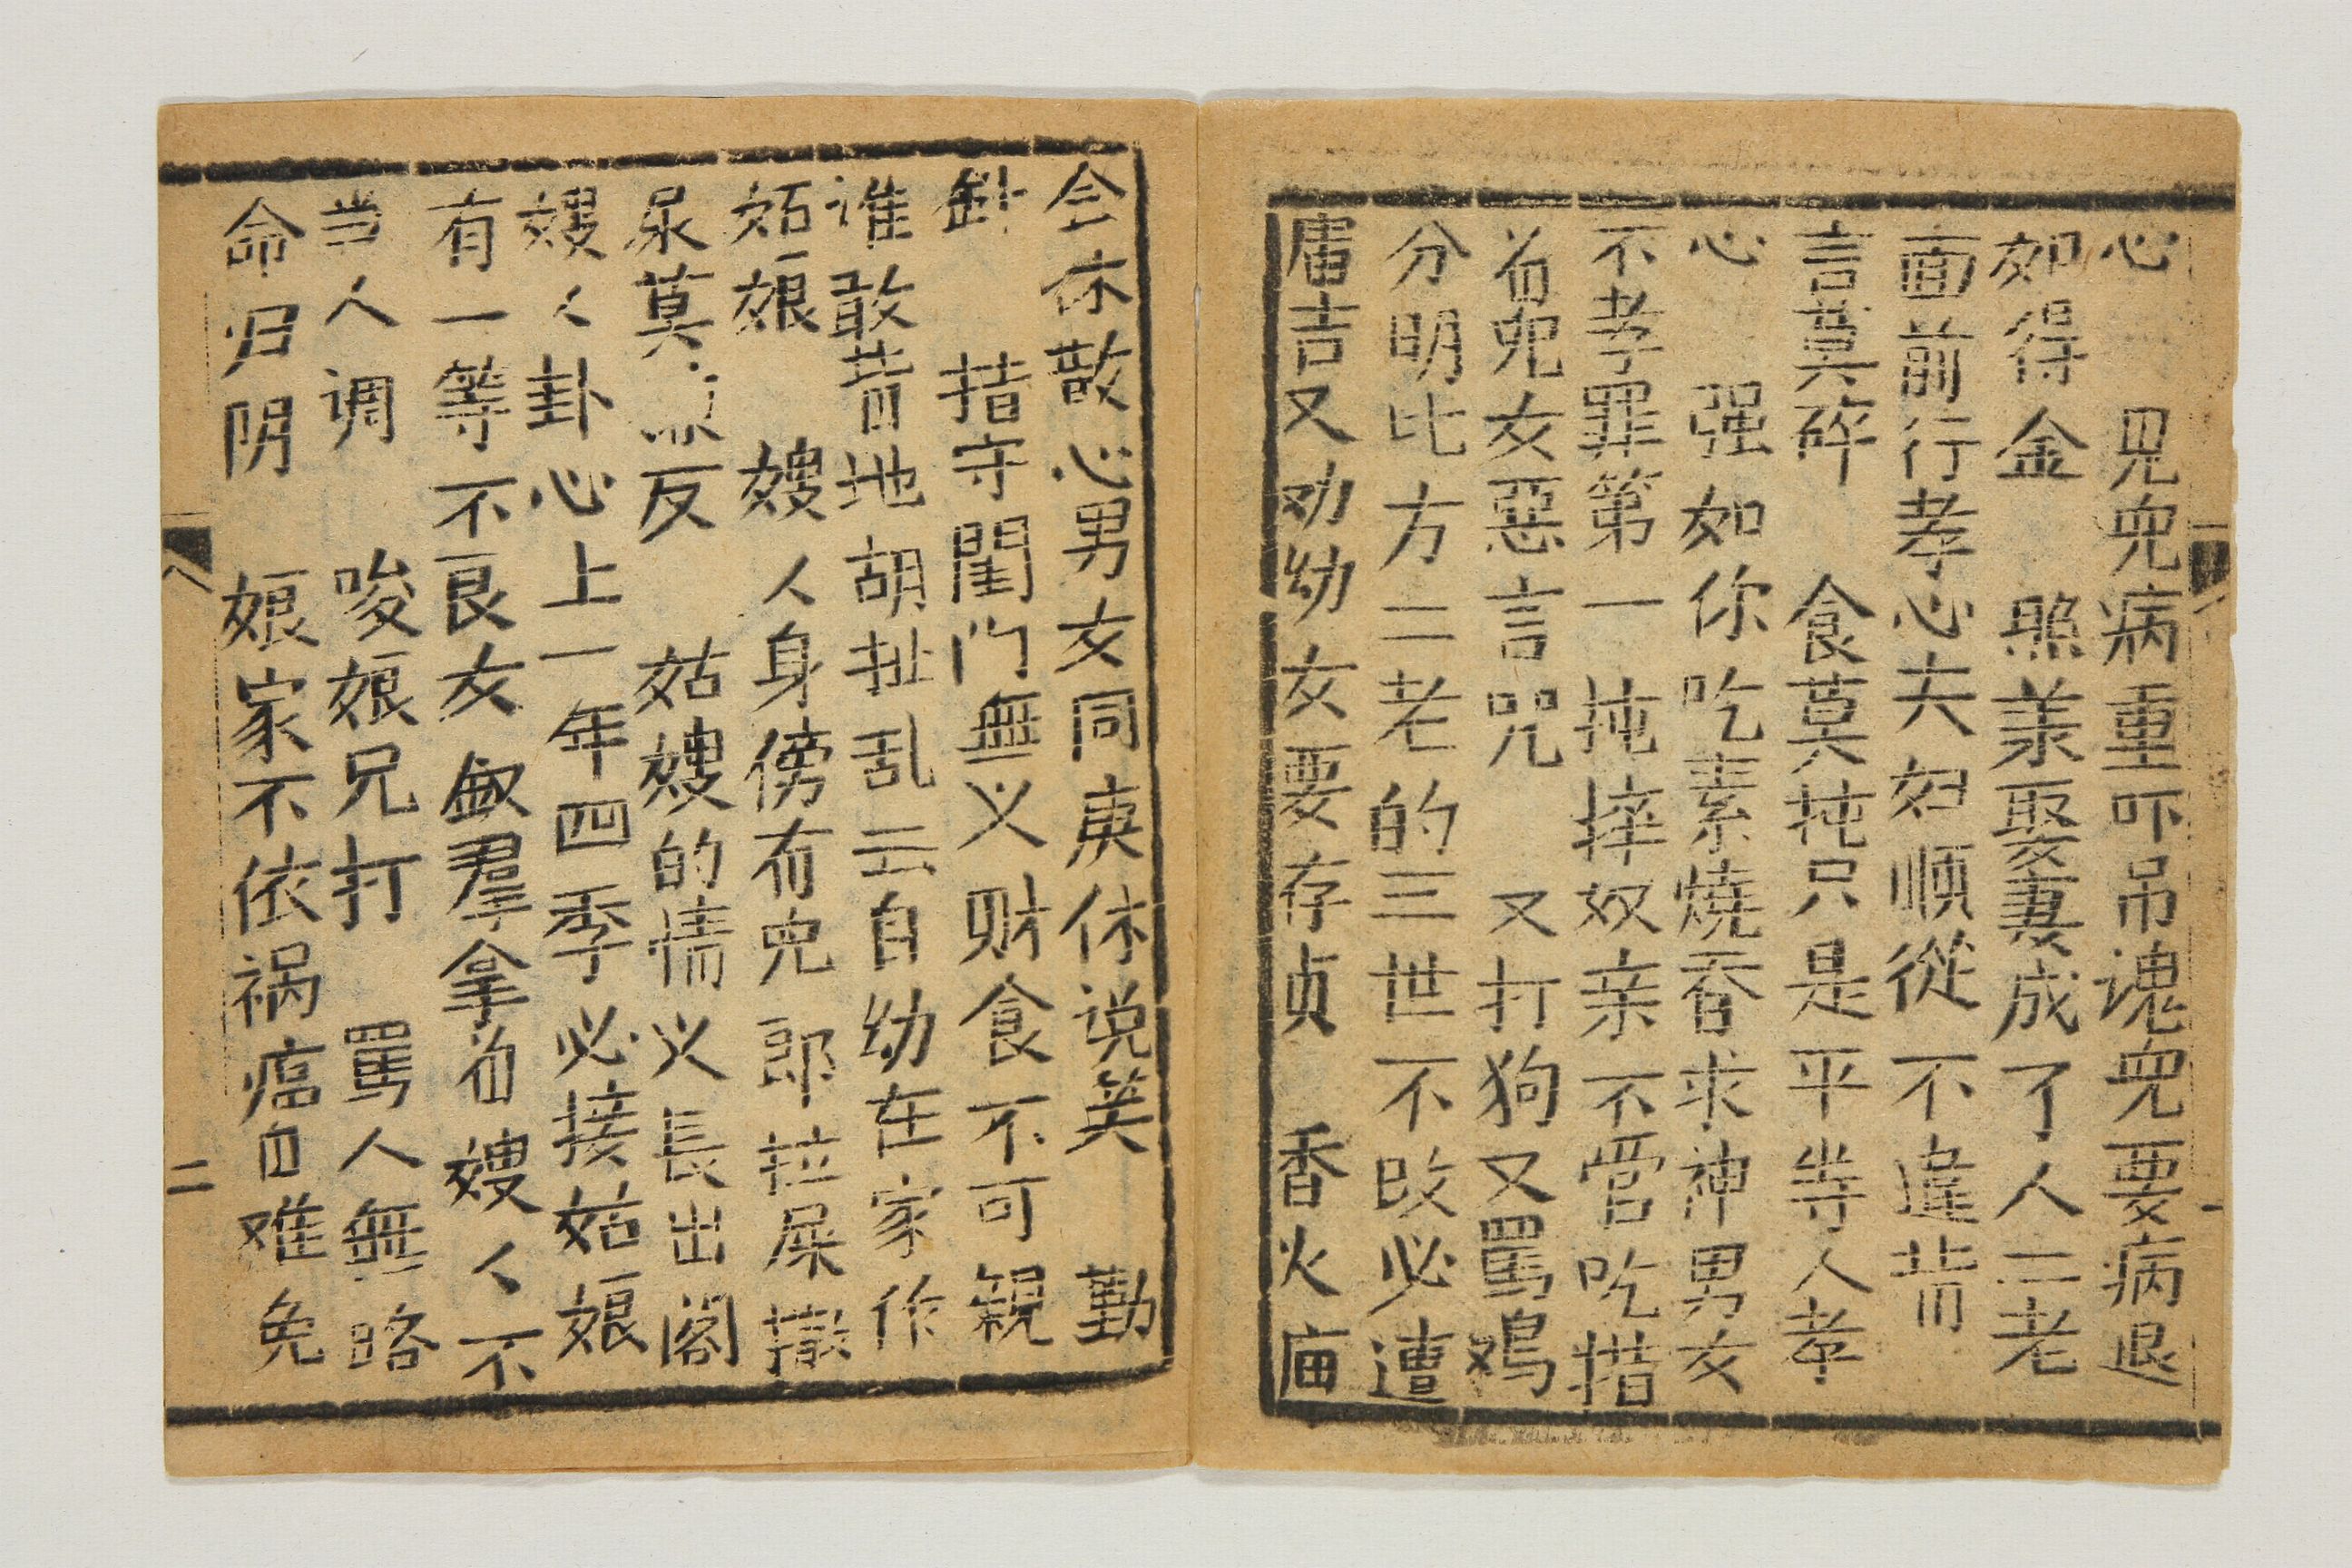 心　見兜病重吓吊魂兜要病退
如得金　照羕娶妻成了人二老
面前行孝心夫妇顺從不違背
言莫碎　食莫扽只是平等人孝
心　强如你吃素燒香求神男女
不孝罪第一扽摔奴亲不管吃措
着兜女惡言咒　又打狗又罵鳮
分明比方二老的三世不改必遭
庿吉又劝幼女要存贞　香火庙
会休散心男女同庚休说英　勤
針　措守閨门無义财食不可親
谁敢背地胡扯乱云自幼在家作
姤娘　嫂人身傍有兜郎拉屎撒
尿莫反　姑嫂的情义長出閣
嫂く卦心上一年四季必接姑娘
有一等不良女㑹羣拿着嫂く不
当人调　唆娘兄打　罵人無略
命归阴　娘家不依祸癌自难免
二